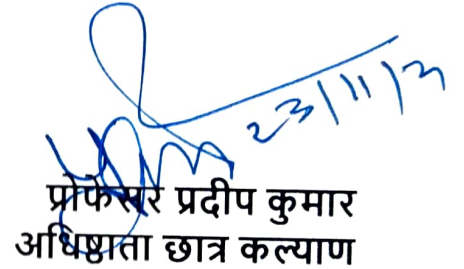 23/11/21
प्रोफेसर प्रदीप कुमार
अधिष्ठाता छात्र कल्याण